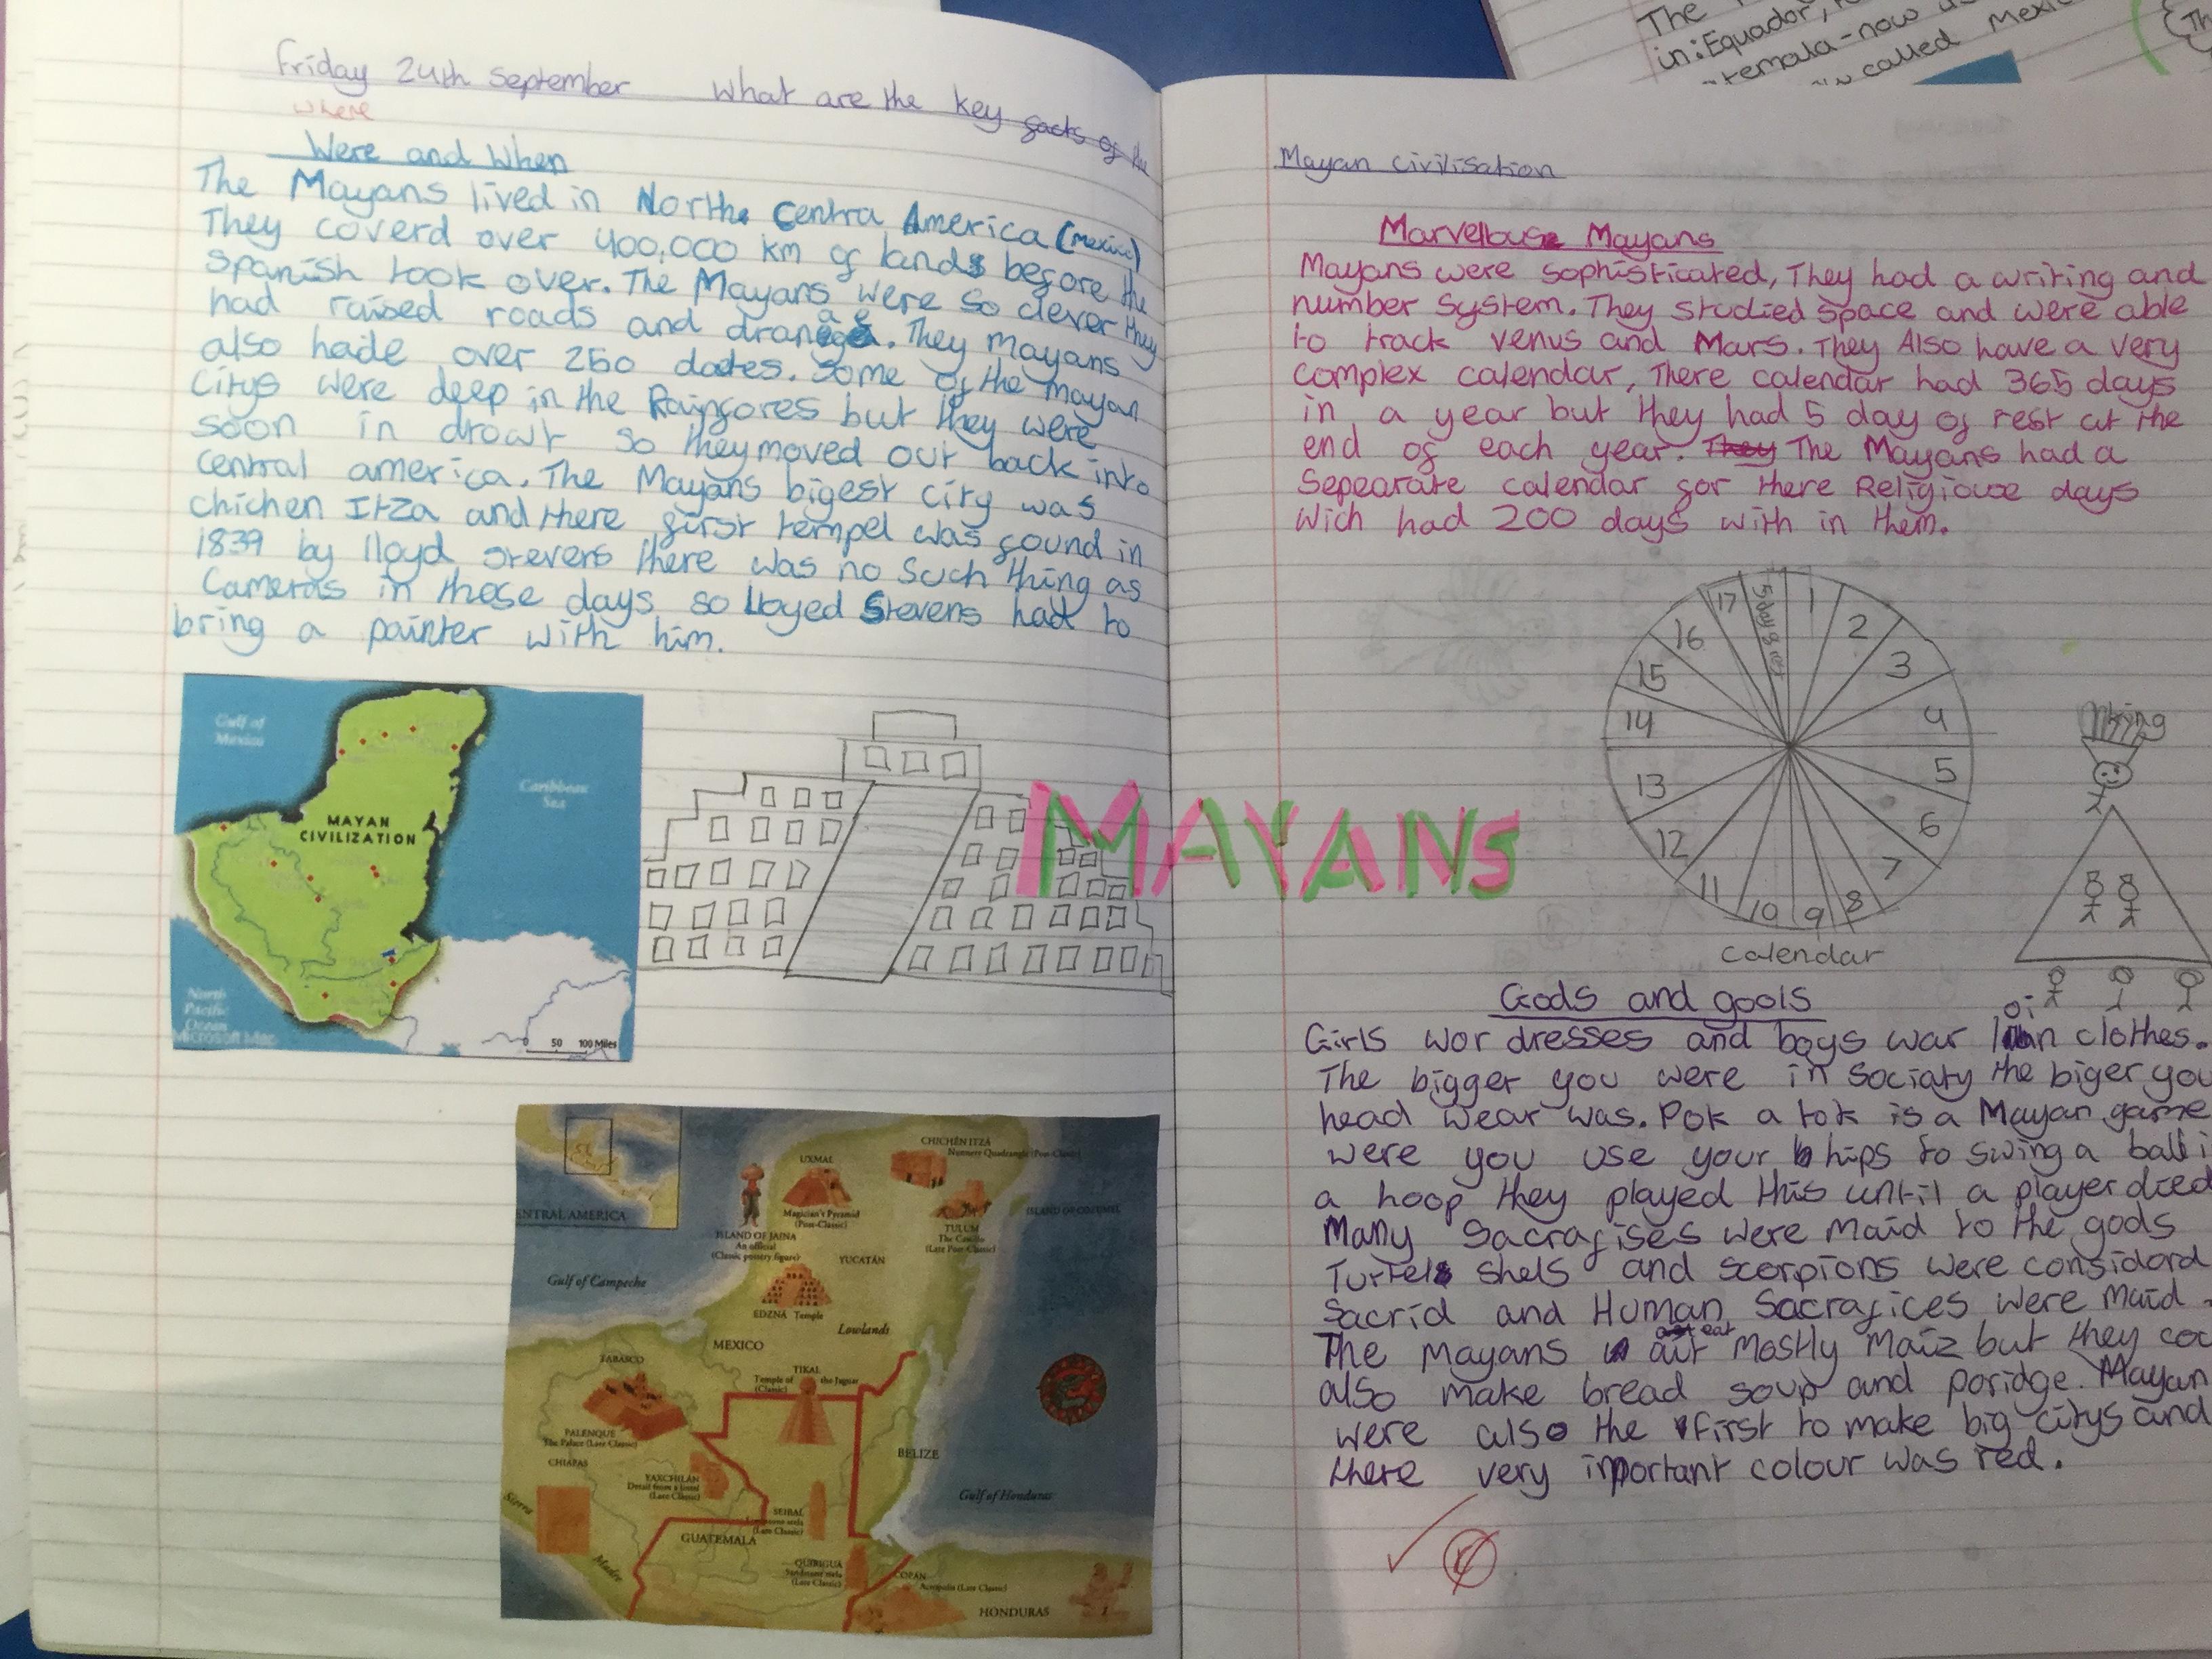 Friday 24th September What are the key facts of the
where
Were and When
The Mayans lived in North. Centra America (Mexico)
They coverd over 400,000 km of lands before the
Spanish took over. The Mayans were so clever they
had raised roads and
also hade over 260 dates. Some of the Mayan
Citys were deep in the Rainfores but they were
soon in drowt so they moved out back into
central america. The Mayans bigest city was
chichen Itza and there first tempel was found in
1839 by lloyd stevens there was no such thing as
Cameras in those days so lloyed Stevens had to
bring a painter with him.
Gulf of
Mexico
Caribbean
Sea
MAYAN
CIVILIZATION
North
Pacific
Ocean
Microsoft Map
0 50 100 Miles
MAYANS
CENTRAL AMERICA
CHICHÉN ITZÁ
Nunnery Quadrangle (Post-Classic)
UXMAL
Magician's Pyramid
(Post-Classic)
ISLAND OF COZUMEL
TULUM
The Castillo
(Late Post-Classic)
ISLAND OF JAINA
An official
(Classic pottery figure)
YUCATÁN
Gulf of Campeche
EDZNÁ Temple
Lowlands
MEXICO
TABASCO
TIKAL
Temple of the Jaguar
(Classic)
PALENQUE
The Palace (Late Classic)
BELIZE
CHIAPAS
YAXCHILÁN
Detail from a lintel
(Late Classic)
Gulf of Honduras
Sierra
Madre
SEIBAL
(Late Classic)
GUATEMALA
QUIRIGUA
Sandstone stela
(Late Classic)
COPÁN
Acropolis (Late Classic)
HONDURAS
The
in: Equador,
temala-now
called Mexic
Th
Mayan Civilisation
Marvelouse Mayans
Mayans were sophisticated, They had a writing and
number system. They studied space and were able
to track venus and Mars. They Also have a very
complex calendar, There calendar had 365 days
in a year but they had 5 day of rest at the
end of each year. They The Mayans had a
Sepearate calendar for there Religiouse days
Wich had 200 days with in them.
1
2
3
4
5
6
7
8
9
10
11
12
13
14
15
16
17
5 day of res
calendar
king
Gods and gools
oi
Girls wor dresses and boys war clothes.
The bigger you were in sociaty the biger you
head wear was. Pok a tok is a Mayan game
were you use your hips to swing a ball i
a hoop they played this until a player died
Many Sacrafises were maid to the gods
Turtels shels and scorpions were considard
Sacrid and Human Sacrafices were maid.
eat
The mayans ait mostly maiz but they cou
also make bread soup and poridge. Mayan
were also the first to make big citys and
there very important colour was red.